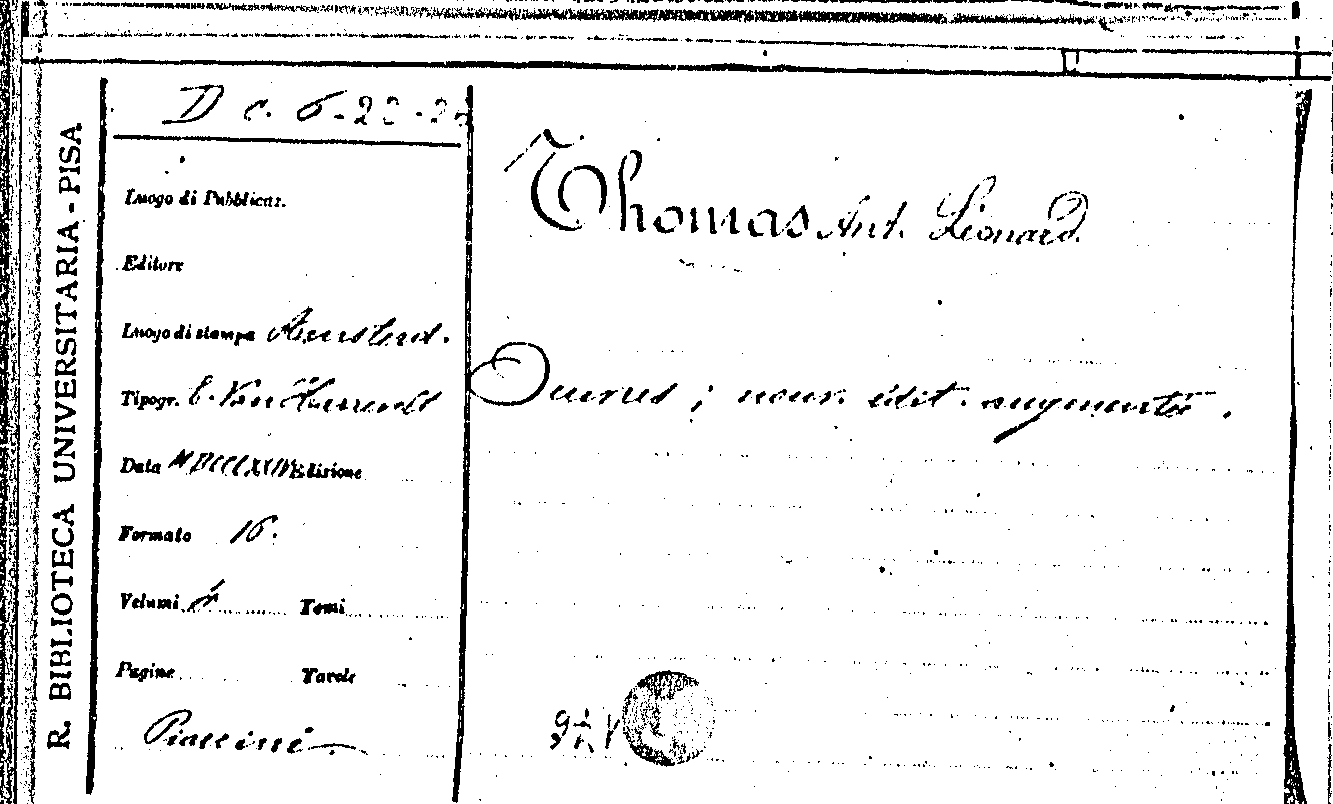 R. BIBLIOTECA UNIVERSITARIA - PISA
D c. 6-20-
Luogo di Pubblicaz.
Editore
Luogo di stampa Amsterd.
Tipogr. E. Van Harrevelt
Data MDCCLXXIV Edizione
Formato 16.
Volumi 4 Tomi
Pagine Tavole
Piaccini
Thomas Ant. Léonard.
Oeuvres ; nouv. édit. augmentée.